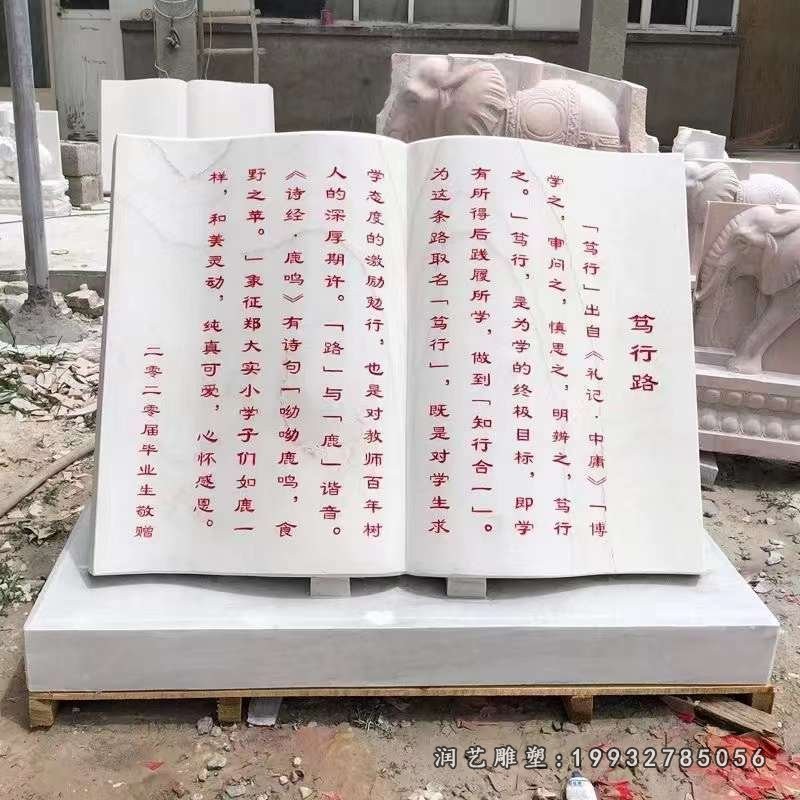 笃行路
「笃行」出自《礼记·中庸》「博
学之，审问之，慎思之，明辨之，笃行
之。」笃行，是为学的终极目标，即学
有所得后践履所学，做到「知行合一」。
为这条路取名「笃行」，既是对学生求
学态度的激励勉行，也是对教师百年树
人的深厚期许。「路」与「鹿」谐音。
《诗经·鹿鸣》有诗句「呦呦鹿鸣，食
野之苹。」象征郑大实小学子们如鹿一
样，和美灵动，纯真可爱，心怀感恩。
二零二零届毕业生敬赠
润艺雕塑:19932785056